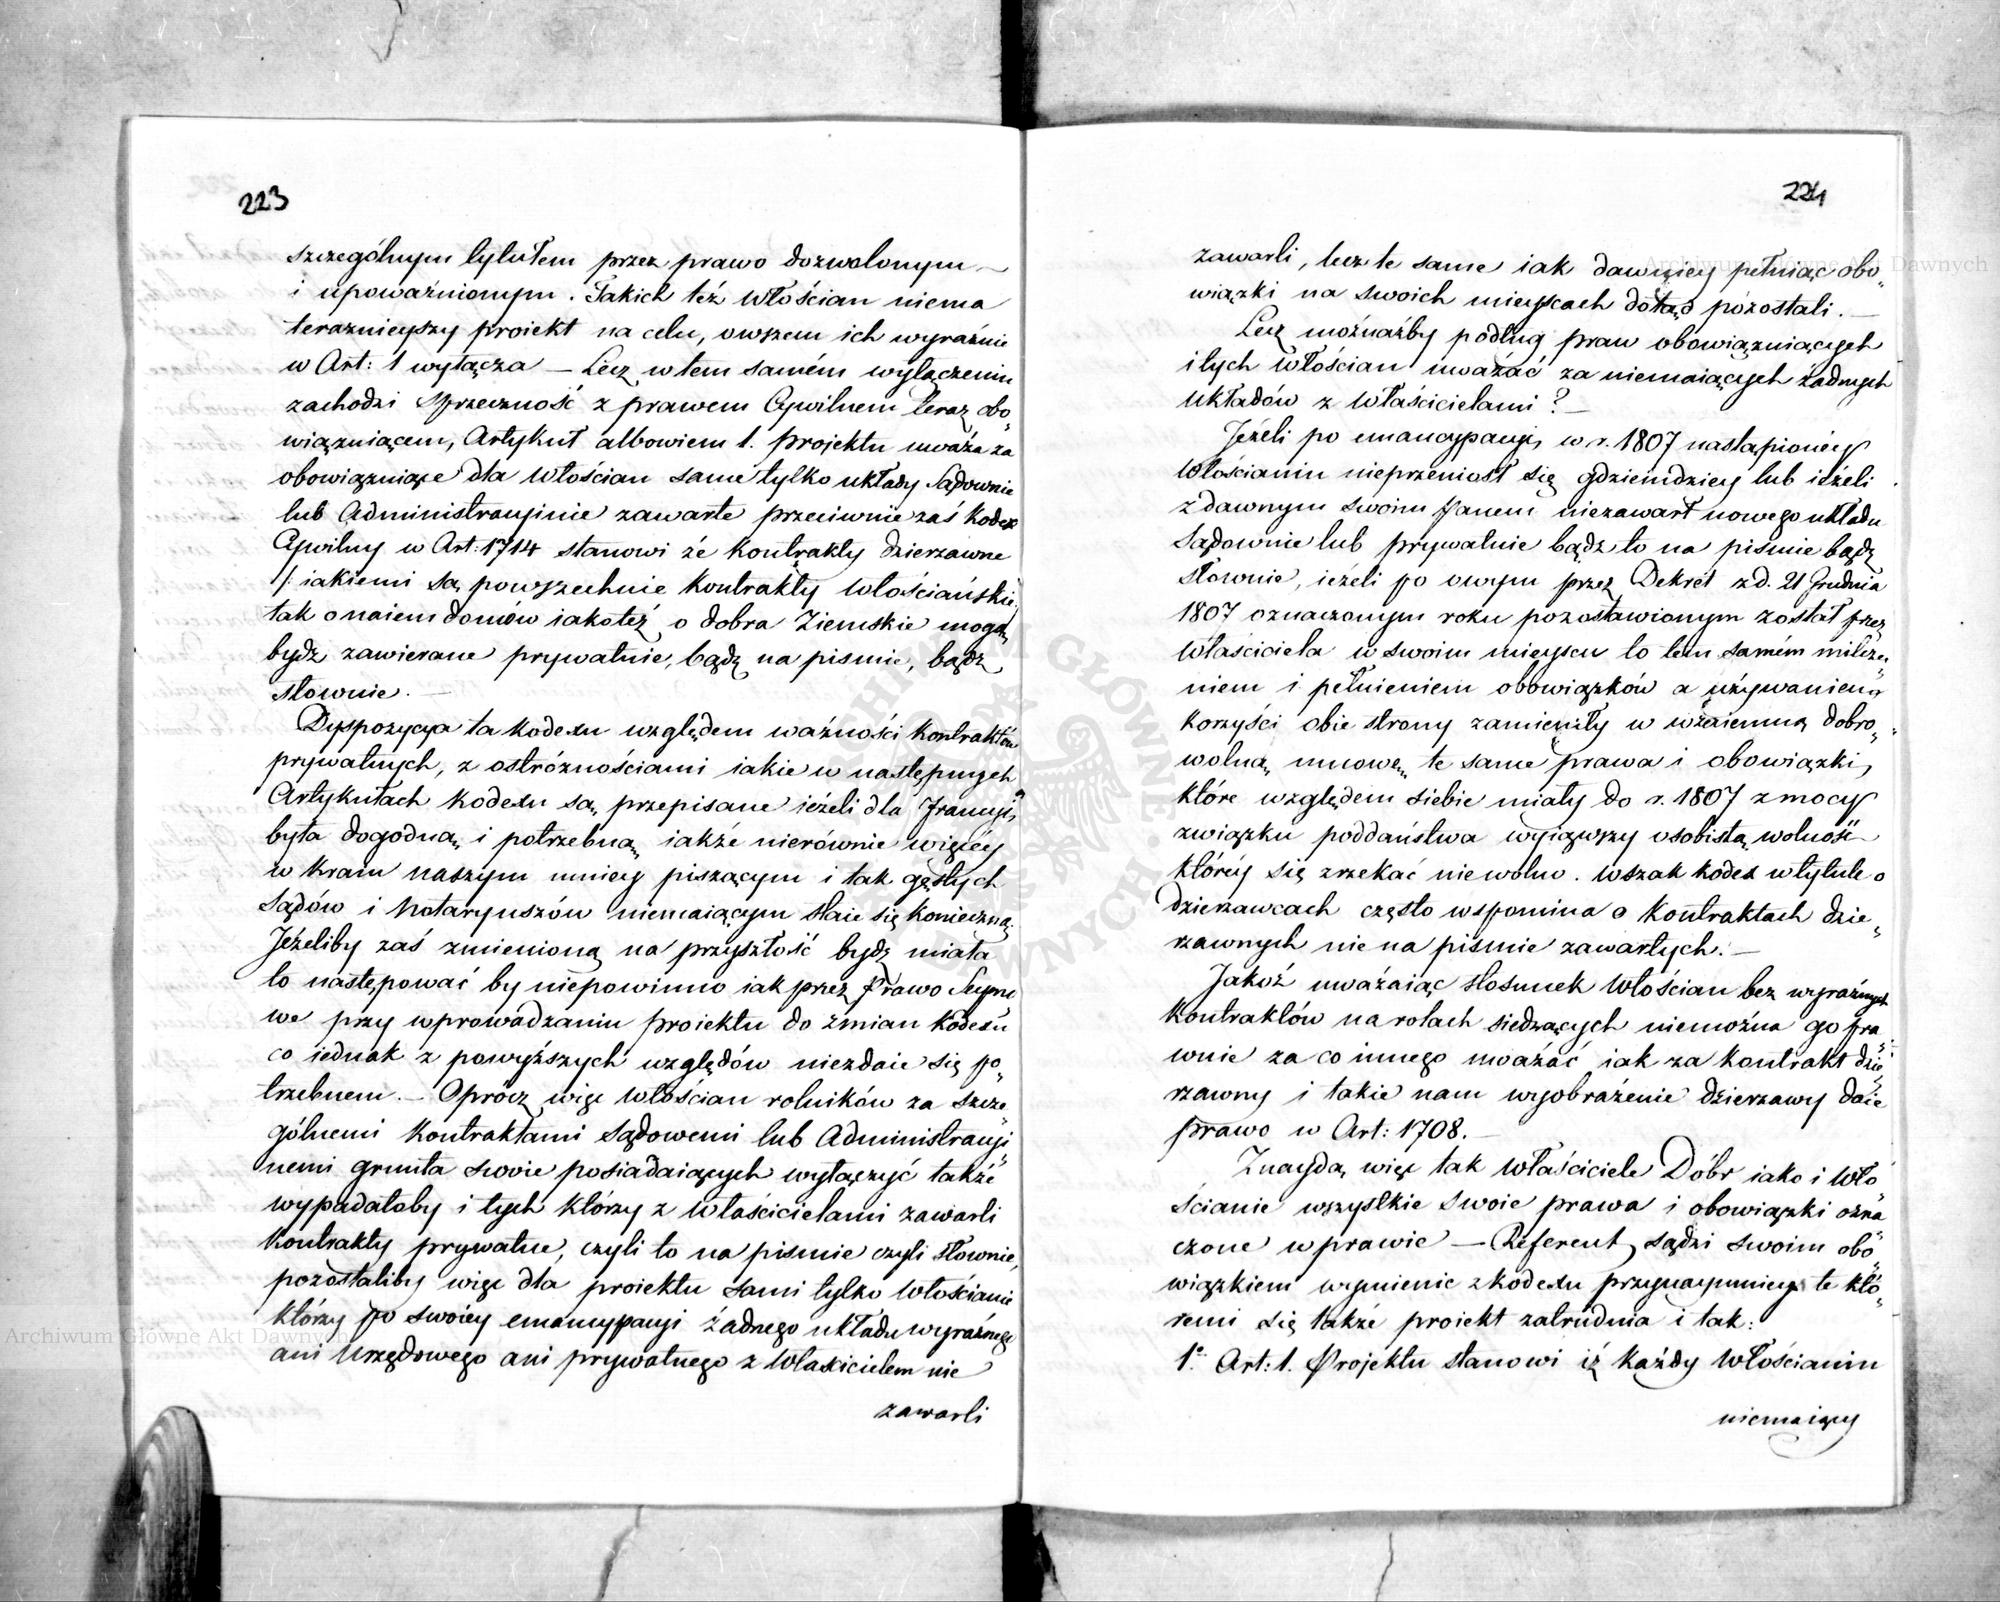 223
szczególnym tytułem przez prawo dozwolonym
i upoważnionym. Takich też Włościan niema
terazniejszy proiekt na celu, owszem ich wyraźnie
w Art: 1 wyłącza — Lecz w tem samém wyłączeniu
zachodzi sprzeczność z prawem Cywilnem teraz obo„
wiązuiącem, Artykuł albowiem 1. projektu uważa za
obowiązuiące dla Włościan same tylko układy Sądownie
lub Administracyinie zawarte przeciwnie zaś Kodex
Cywilny w Art: 1714 stanowi że Kontrakty dzierzawne
/: iakiemi są powszechnie Kontrakty Włościańskie:
tak o naiem domów iakoteż o dobra Ziemskie mogą
bydz zawierane prywatnie, bądz na pismie, bądz
słownie. —
Dyspozycya ta kodexu względem ważności kontraktów
prywatnych, z ostróżnościami iakie w następnych
Artykułach kodexu są przepisane ieżeli dla Francyi
była dogodną i potrzebną iakże nierównie więcéy
w kraiu naszym mniey piszącym i tak gęstych
Sądów i Notaryuszów niemaiącym staie się konieczną.
Jeżeliby zaś zmienioną na przyszłość bydz miała
to następować by niepowinno iak przez Prawo Seymo
we przy wprowadzaniu proiektu do zmian kodexu
co iednak z powyższych względów niezdaie się po„
trzebnem. — Oprócz więc Włościan rolników za szcze
gólnemi kontraktami Sądowemi lub Administracyi
nemi grunta swoie posiadaiących wyłączyć także
wypadałoby i tych którzy z Właścicielami zawarli
kontrakty prywatne, czyli to na pismie czyli słownie,
pozostaliby więc dla proiektu sami tylko Włościanie
którzy po swoiey emancypacyi żadnego układu wyraźnego
ani Urzędowego ani prywatnego z Właścicielem nie
zawarli
224
zawarli, lecz te same iak dawniey pełniąc obo„
wiązki na swoich mieyscach dotąd pozostali. —
Lecz możnażby podług praw obowiązuiących
i tych Włościan uważać za niemaiących żadnych
układów z Właścicielami? —
Jeżeli po emancypacyi w r. 1807 nastąpionéy
Włościanin nieprzeniosł się gdzieindziey lub ieżeli
z dawnym swoim Panem niezawarł nowego układu
Sądownie lub prywatnie bądz to na pismie bądz
słownie, ieżeli po owym przez Dekret z d. 21 Grudnia
1807 oznaczonym roku pozostawionym został przez
Właściciela w swoim mieyscu to tem samém milcze„
niem i pełnieniem obowiązków a używaniem
korzyści obie strony zamieniły w wzaiemną dobro„
wolną umowę te same prawa i obowiązki,
które względem siebie miały do r. 1807 z mocy
związku poddaństwa wyiąwszy osobistą wolność
któréy się zrzekać niewolno. Wszak kodex w tytule o
dzierzawcach często wspomina o kontraktach dzie„
rzawnych nie na pismie zawartych. —
Jakoż uważaiąc stosunek Włościan bez wyraźnych
kontraktów na rolach siedzących niemożna go pra„
wnie za co innego uważać iak za kontrakt dzie
rzawny i takie nam wyobrażenie dzierzawy daie
prawo w Art: 1708. —
Znaydą więc tak Właściciele Dóbr iako i Wło
ścianie wszystkie swoie prawa i obowiązki ozna
czone w prawie — Referent sądzi swoim obo„
wiązkiem wymienic z kodexu przynaymniey te któ„
remi się także proiekt zatrudnia i tak:
1º Art: 1. Projektu stanowi iż każdy Włościanin
niemaiący
Archiwum Główne Akt Dawnych
Archiwum Główne Akt Dawnych